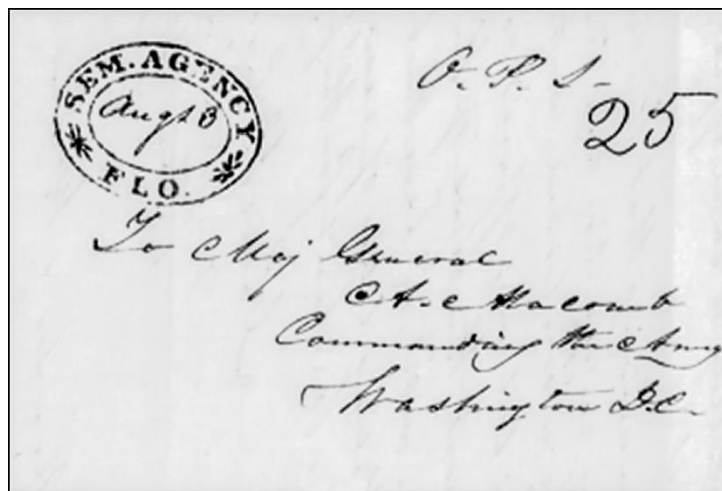 SEM. AGENCY
Augt 3
FLO.
O. P. S-
25
To Maj General
A. Macomb
Commanding the Army
Washington D.C.